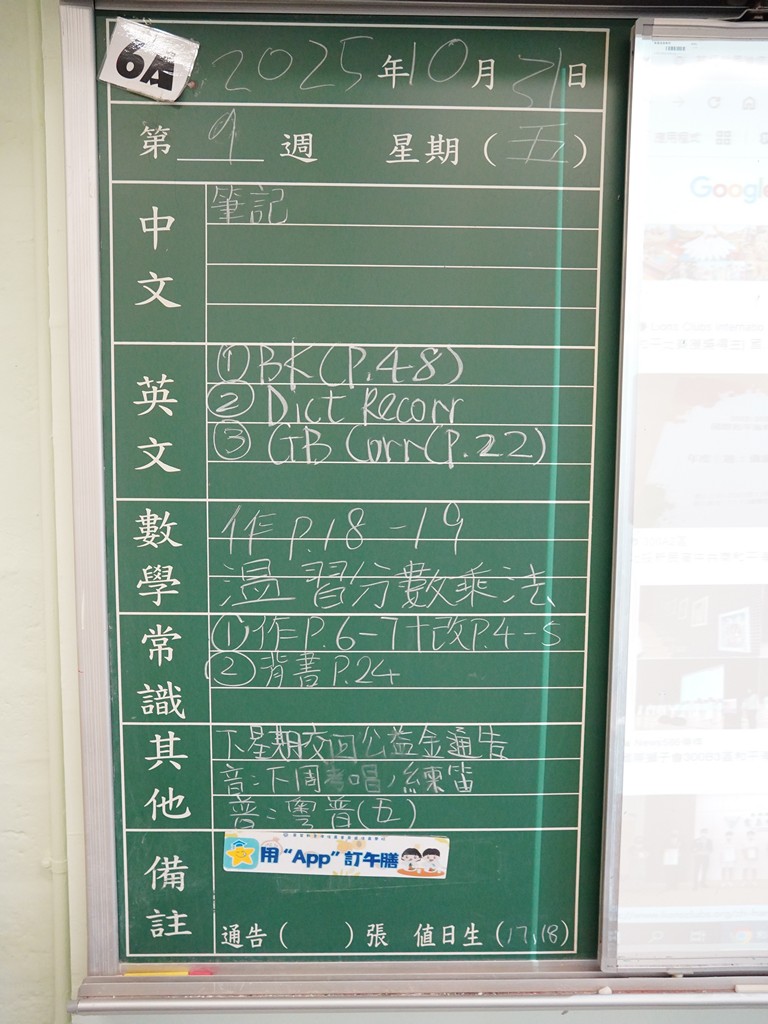 6A
2025年10月31日
第 9 週 星期(五)
中文
筆記
英文
①BK(P.48)
② Dict Recorr
③ GB Corr(P.22)
數學
作 P.18-19
溫習分數乘法
常識
①作P.6-7+改P.4-5
②背書P.24
其他
下星期交回公益金通告
音:下周考唱/練笛
普:粵普(五)
備註
用“App”訂午膳
通告( )張 值日生(17,18)
Google